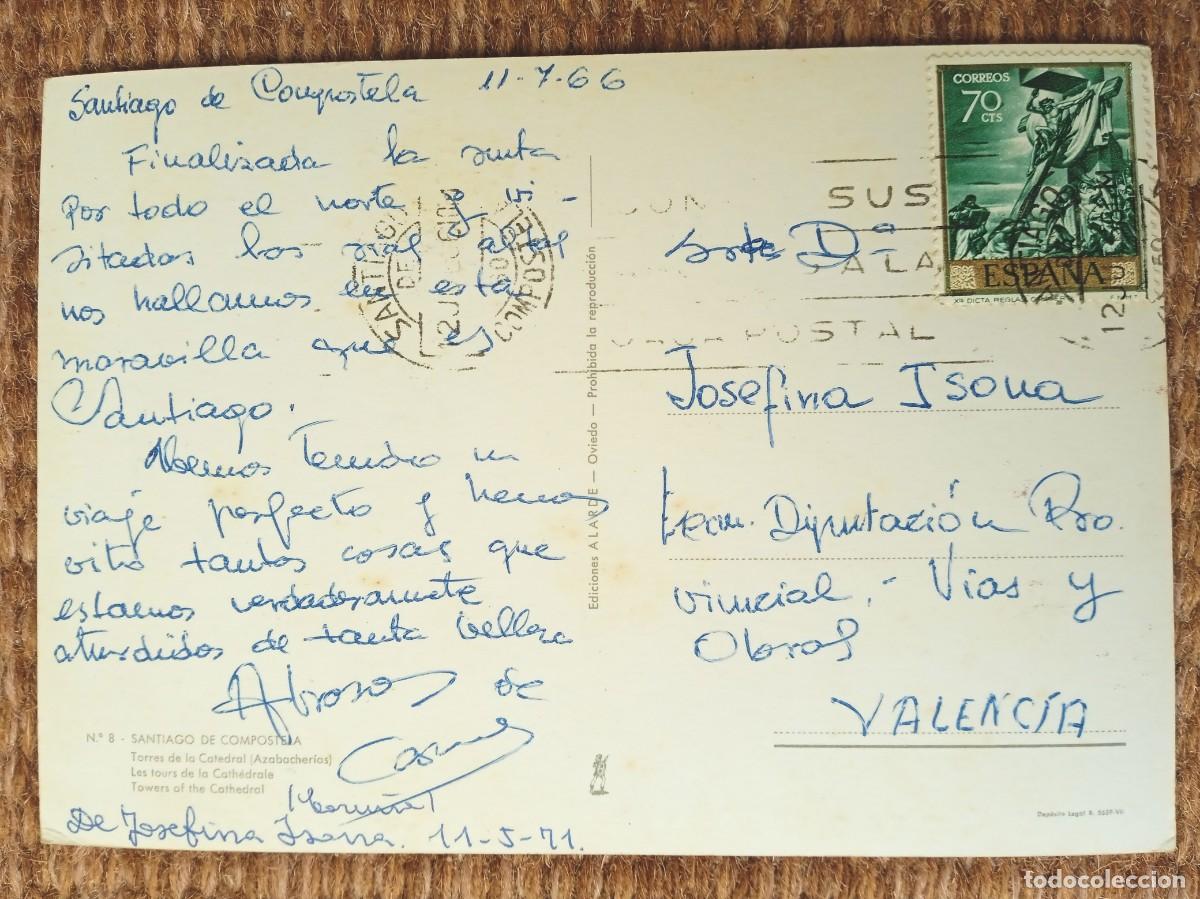 Santiago de Compostela 11-7-66
Finalizada la ruta
por todo el norte y vi-
sitados los
nos hallamos en esta
maravilla que es
Santiago.
Hemos tenido un
viaje perfecto y hemos
visto tantas cosas que
estamos verdaderamente
aturdidos de tanta belleza
Abrazos de
Carmen
N.º 8 - SANTIAGO DE COMPOSTELA
Torres de la Catedral (Azabacherías)
Les tours de la Cathédrale
Towers of the Cathedral
(Coruña)
De Josefina Isona. 11-5-71.
Ediciones ALARDE — Oviedo — Prohibida la reproducción
CORREOS
70
CTS
ESPAÑA
SUS
A LA
POSTAL
Srta Dª
Josefina Isona
Excm. Diputación Pro
vincial.- Vias y
Obras
VALENCIA
Depósito Legal B. 5659-VII
todocoleccion